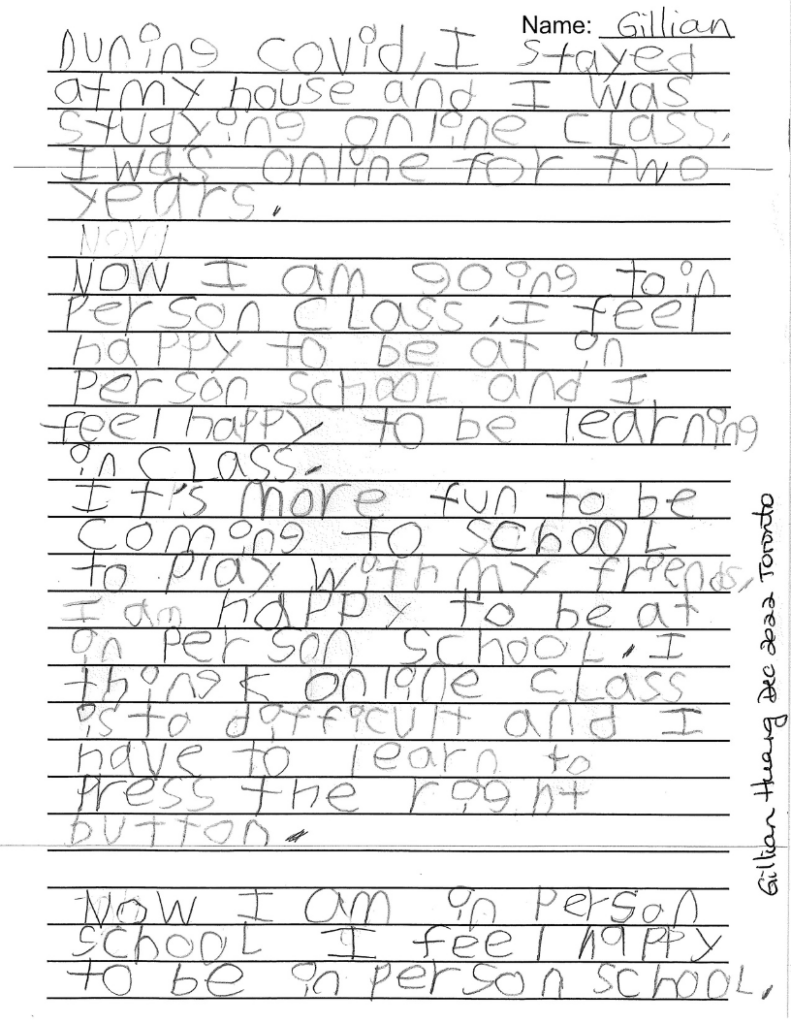 Name: Gillian
During covid, I stayed
at my house and I was
studying online class.
I was online for two
years.
Now
Now I am going to in
Person Class. I feel
happy to be at in
Person school and I
feel happy to be learning
in class.
It's more fun to be
coming to school
to play with my friends,
I am happy to be at
in person school. I
thingk online class
is to difficult and I
have to learn to
Press the right
button.
Now I am in Person
school I feel happy
to be in person school.
Gillian Huang Dec 2022 Toronto